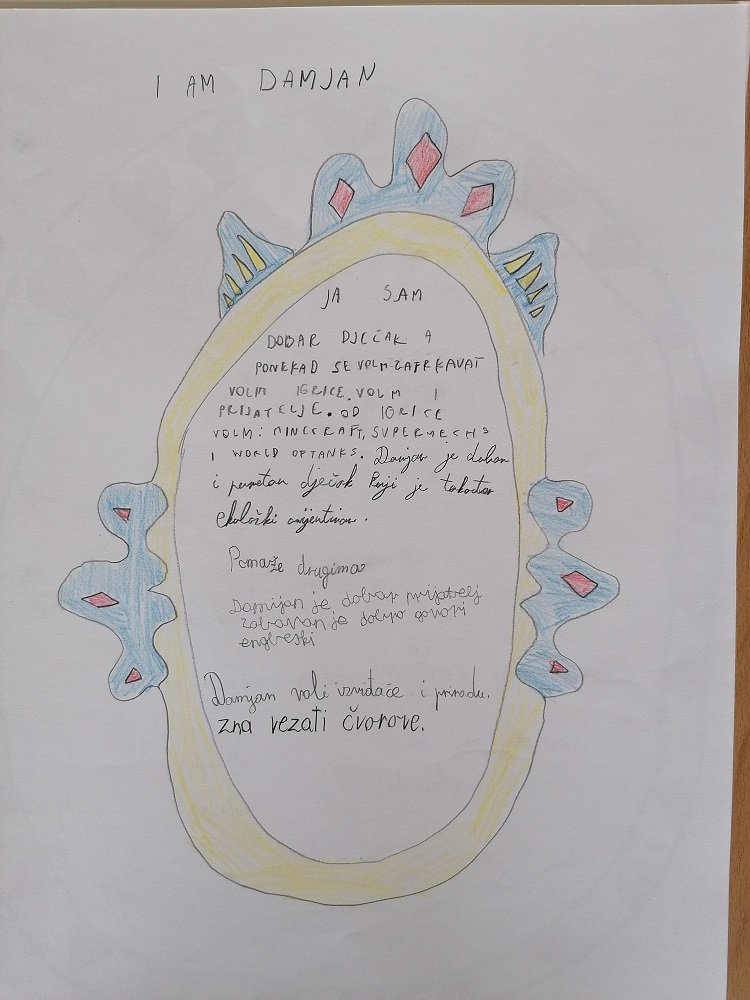 I AM DAMJAN
JA SAM
DOBAR DJEČAK A
PONEKAD SE VOLM ZAFRKAVAT
VOLM IGRICE. VOLM I
PRIJATELJE. OD IGRICE
VOLM: MINECRAFT, SUPERMECHS
I WORLD OFTANKS. Damjan je dobar
i pametan dječak koji je također
ekološki orijentiran.
Pomaže drugima
Damijan je dobar prijatelj
zabavan je dobro govori
engleski
Damjan voli izviđače i prirodu.
zna vezati čvorove.